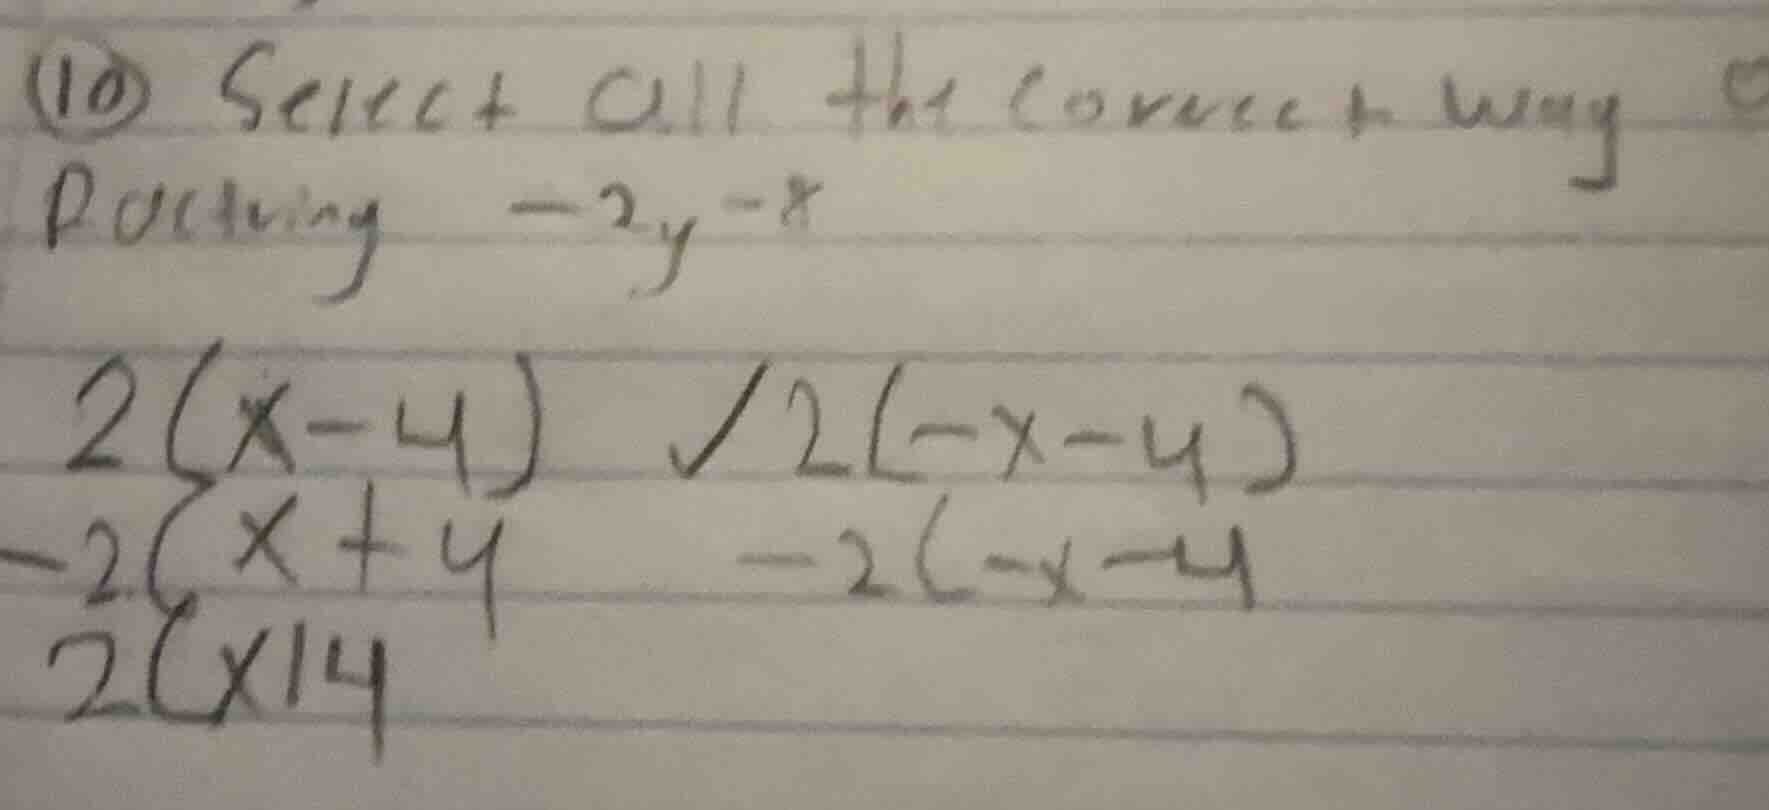 (10) Select all the correct way
Factring -2y-8
2(x-4) ✓2(-x-4)
-2(x+4 -2(-x-4
2(x14